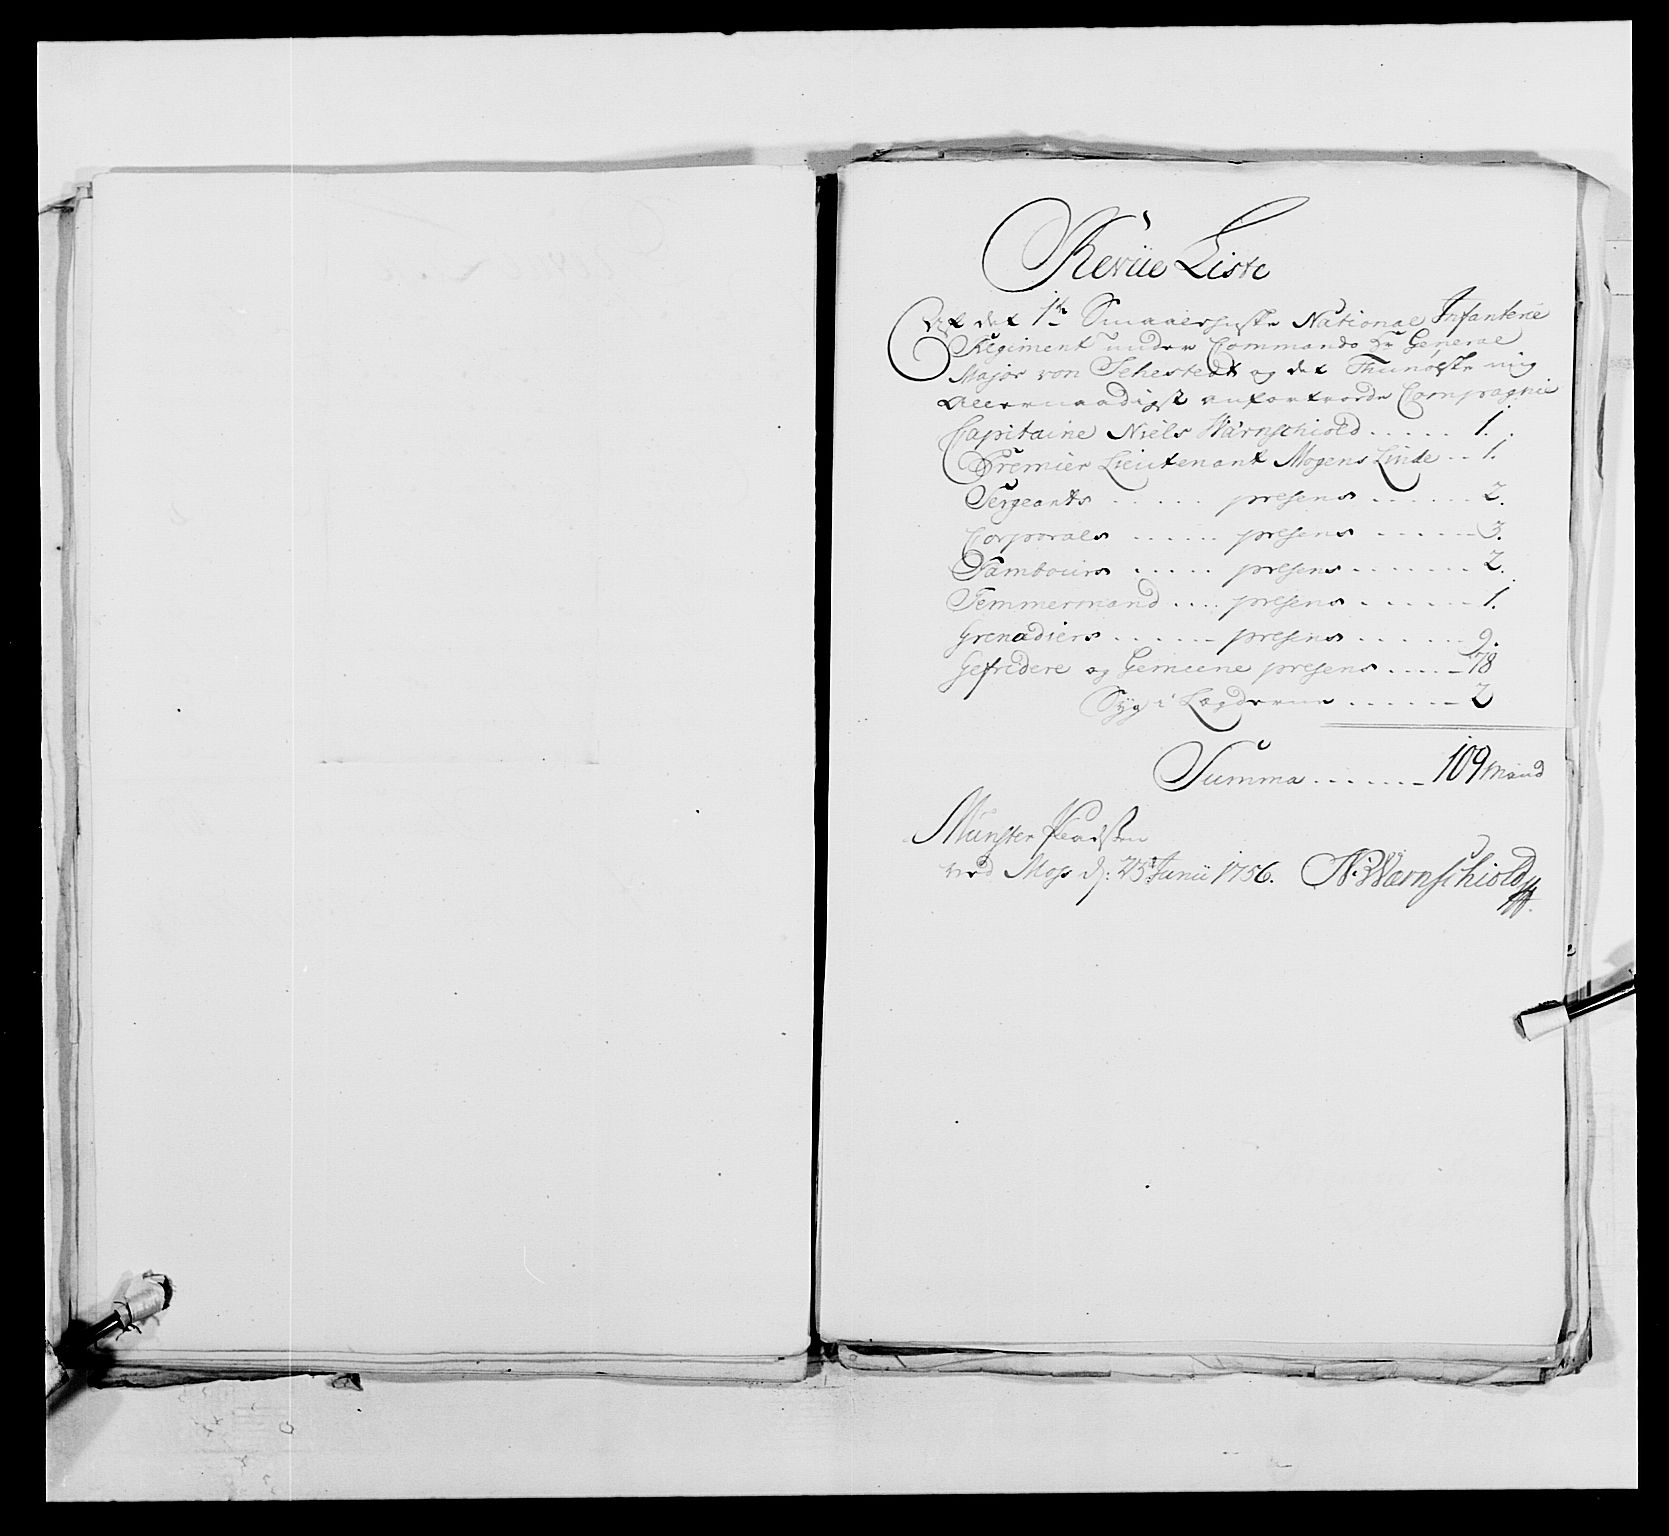 Revüe Liste
Af det 1te Smaalehnske National Infanterie
Regiment under Commando Hr General
Major von Sehestedt og det Thunöeske mig
Allernaadigst anfortroede Compagnie
Capitaine Niels Wärnschiold ..... 1.
Premier Lieutenant Mogens Linde .. 1.
Sergeants ...... presens ...... 2.
Corporals ...... presens ...... 3.
Tambours ..... presens ....... 2.
Temmermand .... presens ...... 1.
Grenadiers ...... presens ...... 9.
Gefridere og Gemeene presens ..... 78
Syg i Lægderne ...... 2
Summa ....... 109 Mand
Munster Pladsen
ved Moss d: 25t Junii 1756. N: Wærnschiold